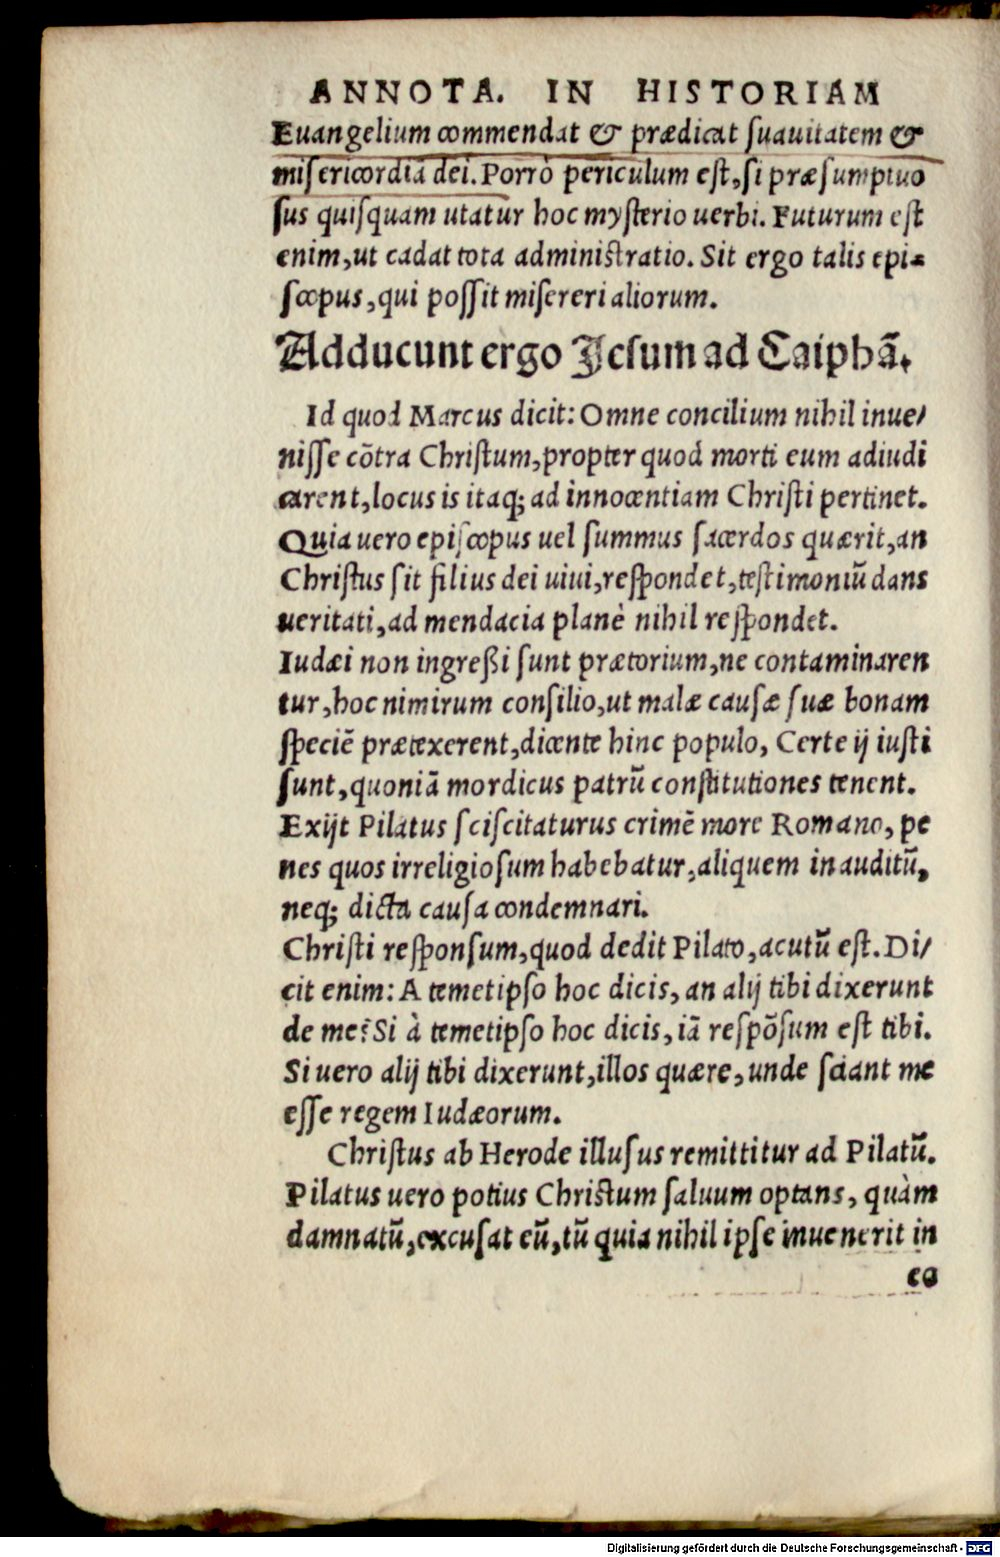 ANNOTA. IN HISTORIAM
Euangelium commendat & prædicat ſuauitatem &
miſericordiā dei. Porrò periculum eſt, ſi præſumptuo
ſus quiſquam utatur hoc myſterio uerbi. Futurum eſt
enim, ut cadat tota adminiſtratio. Sit ergo talis epi-
ſcopus, qui poſſit miſereri aliorum.
Adducunt ergo Jeſum ad Caiphā.
Id quod Marcus dicit: Omne concilium nihil inue/
niſſe cōtra Chriſtum, propter quod morti eum adiudi
carent, locus is itaq; ad innocentiam Chriſti pertinet.
Quia uero epiſcopus uel ſummus ſacerdos quærit, an
Chriſtus ſit filius dei uiui, reſpondet, teſtimoniū dans
ueritati, ad mendacia planè nihil reſpondet.
Iudæi non ingreßi ſunt prætorium, ne contaminaren
tur, hoc nimirum conſilio, ut malæ cauſæ ſuæ bonam
ſpeciē prætexerent, dicente hinc populo, Certe ij iuſti
ſunt, quoniā mordicus patrū conſtitutiones tenent.
Exijt Pilatus ſciſcitaturus crimē more Romano, pe
nes quos irreligioſum habebatur, aliquem inauditū,
neq; dicta cauſa condemnari.
Chriſti reſponſum, quod dedit Pilato, acutū eſt. Di/
cit enim: A temetipſo hoc dicis, an alij tibi dixerunt
de me? Si à temetipſo hoc dicis, iā reſpōſum eſt tibi.
Si uero alij tibi dixerunt, illos quære, unde ſciant me
eſſe regem Iudæorum.
Chriſtus ab Herode illuſus remittitur ad Pilatū.
Pilatus uero potius Chriſtum ſaluum optans, quàm
damnatū, excuſat eū, tū quia nihil ipſe inuenerit in
eo
Digitalisierung gefördert durch die Deutsche Forschungsgemeinschaft - DFG